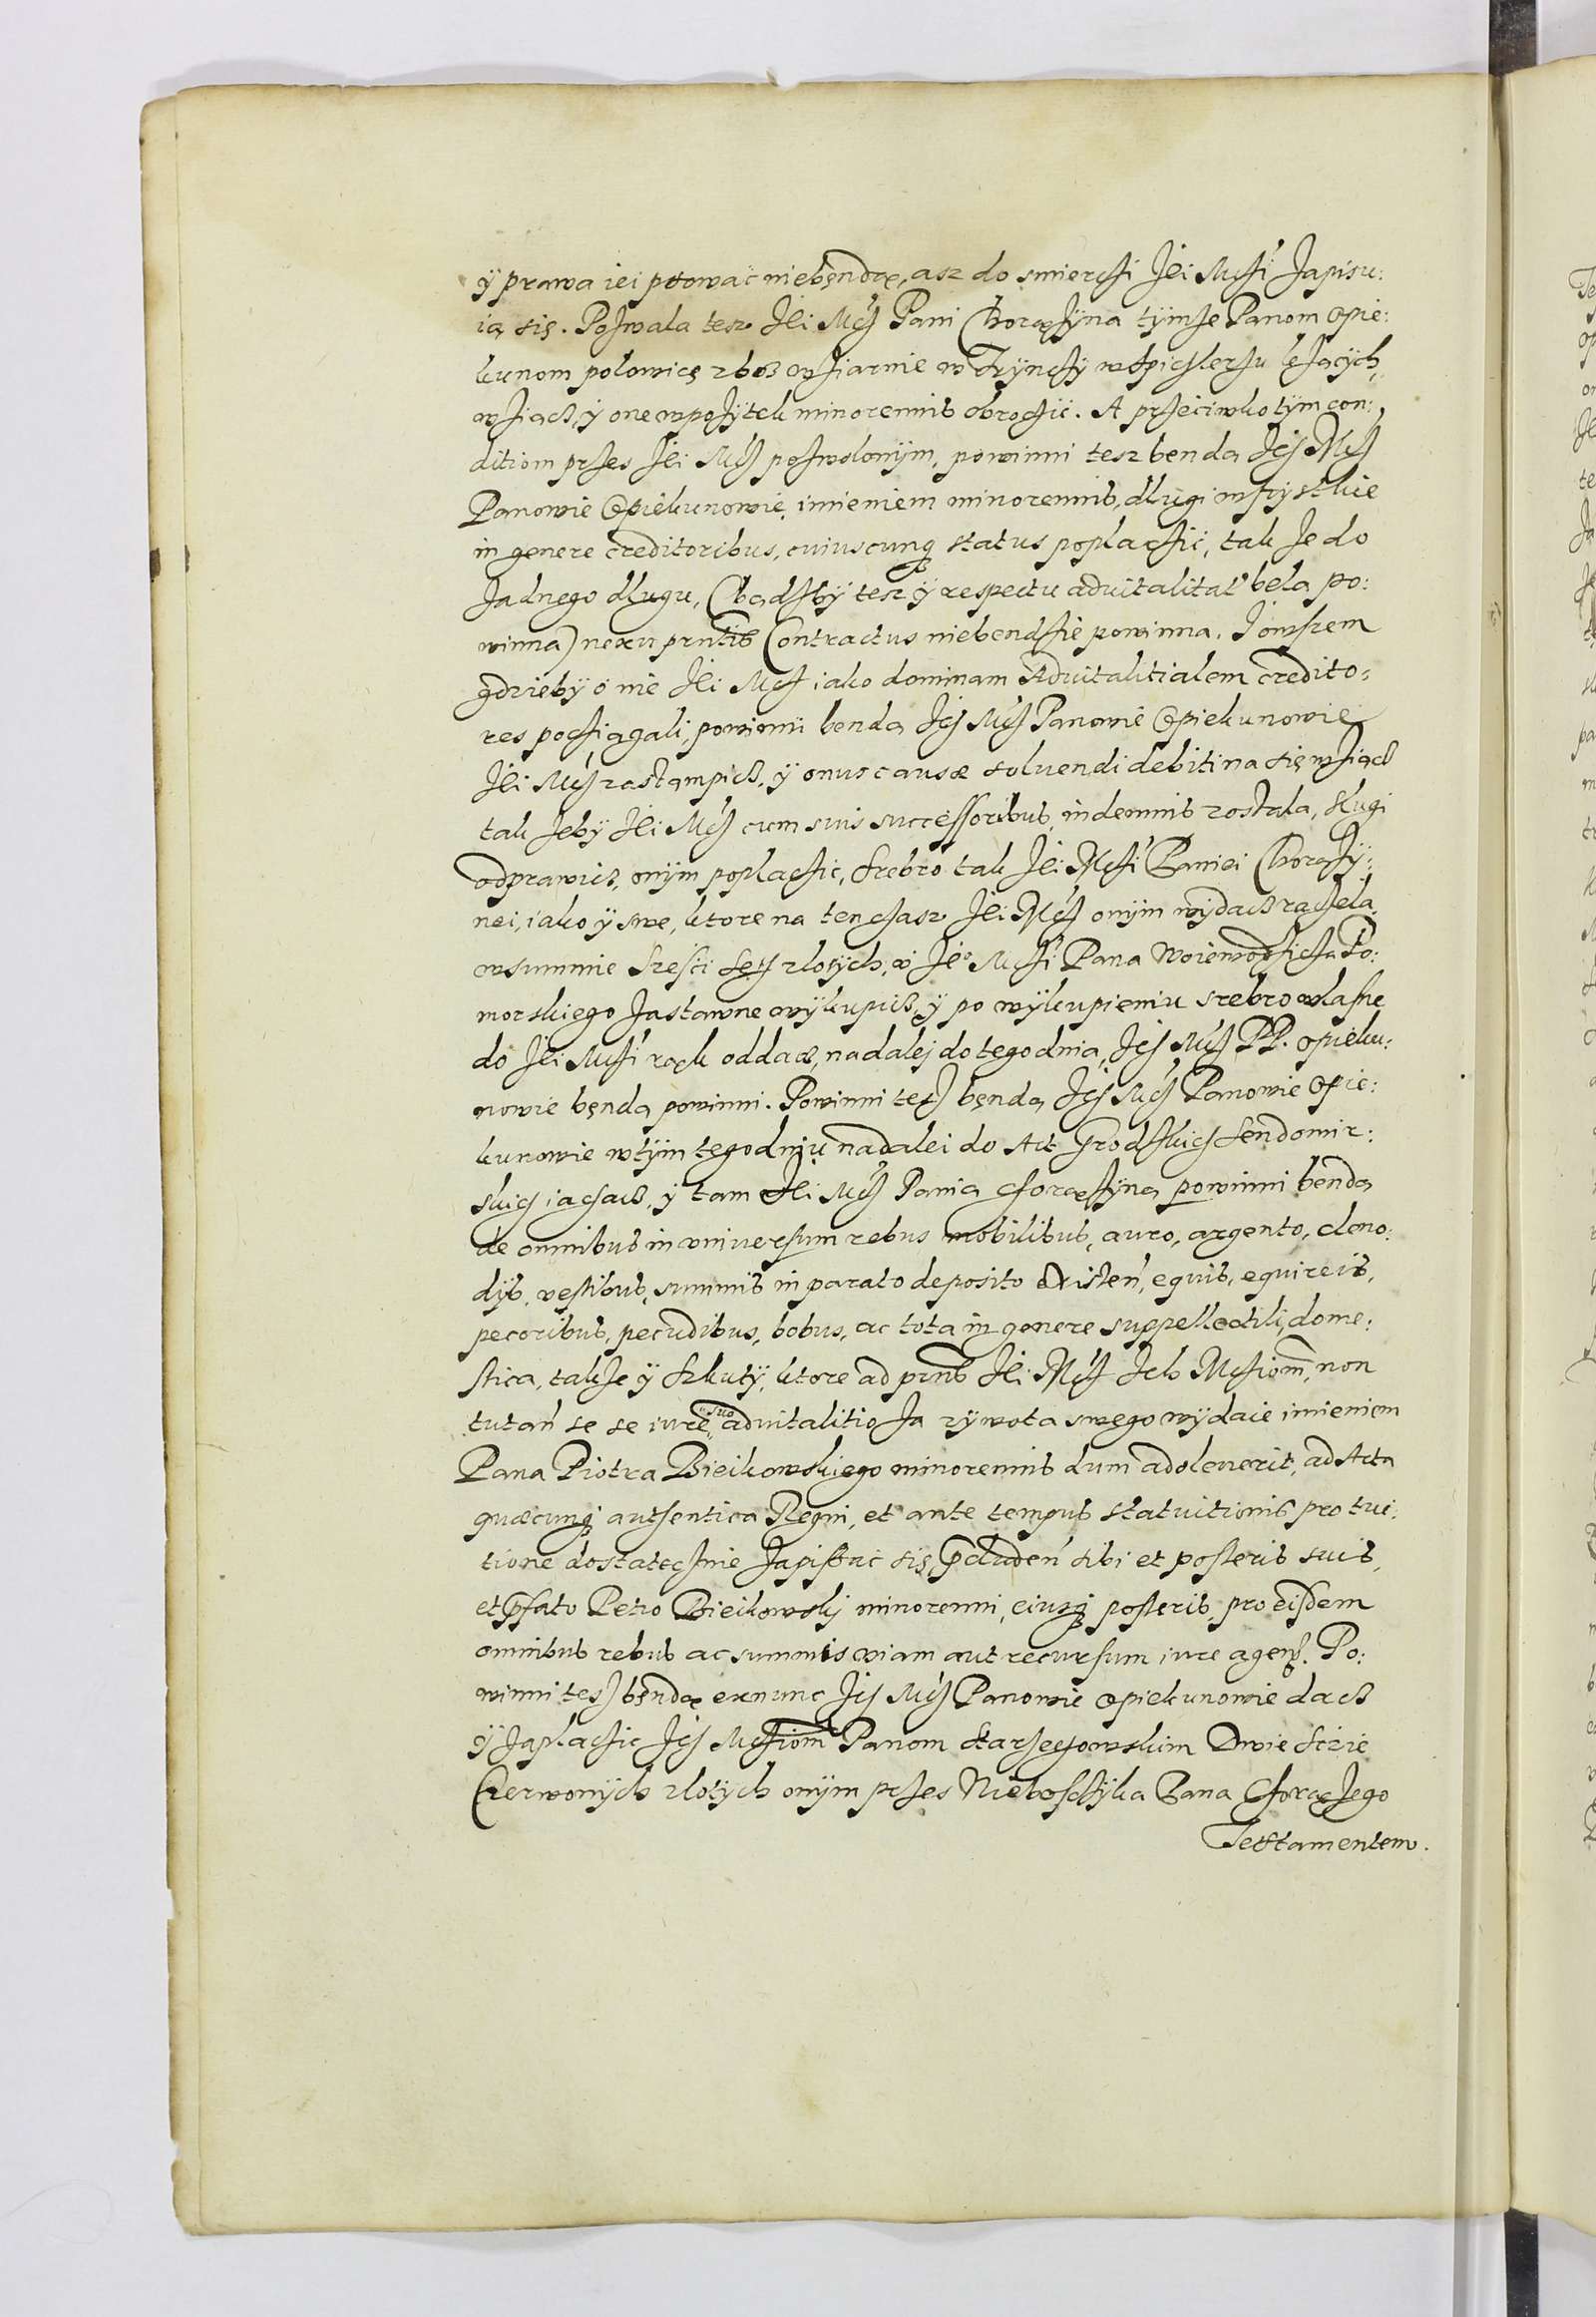 ÿ prawa iei psować niebęndą, asz do smierczi Jei Mczi zapisu:
ią się. Pozwala tesz Jei Mcz Pani Chorążÿna tÿmże Panom Opie:
kunom polowicę zbosz w ziarnie w Trÿnczÿ w spichlerzu leżącÿch,
wziącz, ÿ one w pożÿtek minorennis obroczić. A przeciwko tÿm con:
ditiom przes Jei Mcz pozwolonÿm, powinni tesz benda Jch Mcz
Panowie Opiekunowie, imieniem minorennis, długi wszÿstkie
in genere creditoribus, cuiuscunq status poplaczić, tak że do
żadnego długu, (bądzbÿ tesz ÿ respectu aduitalitat bela po:
winna) nexu prntis Contractus niebendzie powinna. J owszem
gdziebÿ o nie Jei Mcz iako dominam Aduitalitialem credito:
res pociągali, powinni benda Jch Mcz Panowie Opiekunowie
Jei Mcz zastąmpicz, ÿ onus causæ soluendi debiti na się wziącz
tak żebÿ Jei Mcz cum suis successoribus, indemnis została, Slugi
odprawicz, onÿm poplaczic, Srebro tak Jei Mczi Paniei Chorążÿ:
nei, iako ÿ swe, ktore na ten czasz Jei Mcz onÿm wÿdacz raczela,
w summie szesci set złotÿch, v Je° Mczi Pana Woiewodzicza Po:
morskiego zastawne wÿkupicz, ÿ po wÿkupieniu srebro własne
do Jei Mczi rąk oddacz, nadalej do tego dnia, Jch Mcz PP. Opieku:
nowie bęnda powinni. Powinni tesz bęnda Jch Mcz Panowie Opie:
kunowie w tÿm tegodniu nadalei do Act Grodzkich Sendomir:
skich iachacz, ÿ tam Jei Mcz Panią Chorążÿną powinni benda
de omnibus in vniuersum rebus mobilibus, auro, argento, cleno:
dÿs, vestibus, summis in parato deposito existen, equis, equireis,
pecoribus, pecudibus, bobus, ac tota in genere suppellectili, dome:
stica, także ÿ szkutÿ, ktore ad prns Jei Mcz Jch Mcziom, non
tutan se se iure suo aduitalitio za zÿwota swego wÿdaie imieniem
Pana Piotra Bieikowskiego minorennis dum adoleuerit, ad Acta
quæcunq authentica Regni, et ante tempus statuitionis pro tui:
tione dostatecznie zapissać się, pcluden sibi et posteris suis,
et pfato Petro Bieikowskj minorenni, eiusq posteris, pro eisdem
omnibus rebus ac summis viam aut recursum iure agen. Po:
winni tesz bęndą exnunc Jch Mcz Panowie Opiekunowie dacz
ÿ zaplaczic Jch Mcziom Panom Starzechowskim Dwie scie
Czerwonÿch złotÿch onÿm przes Nieboszczÿka Pana Chorążego
Testamentem.